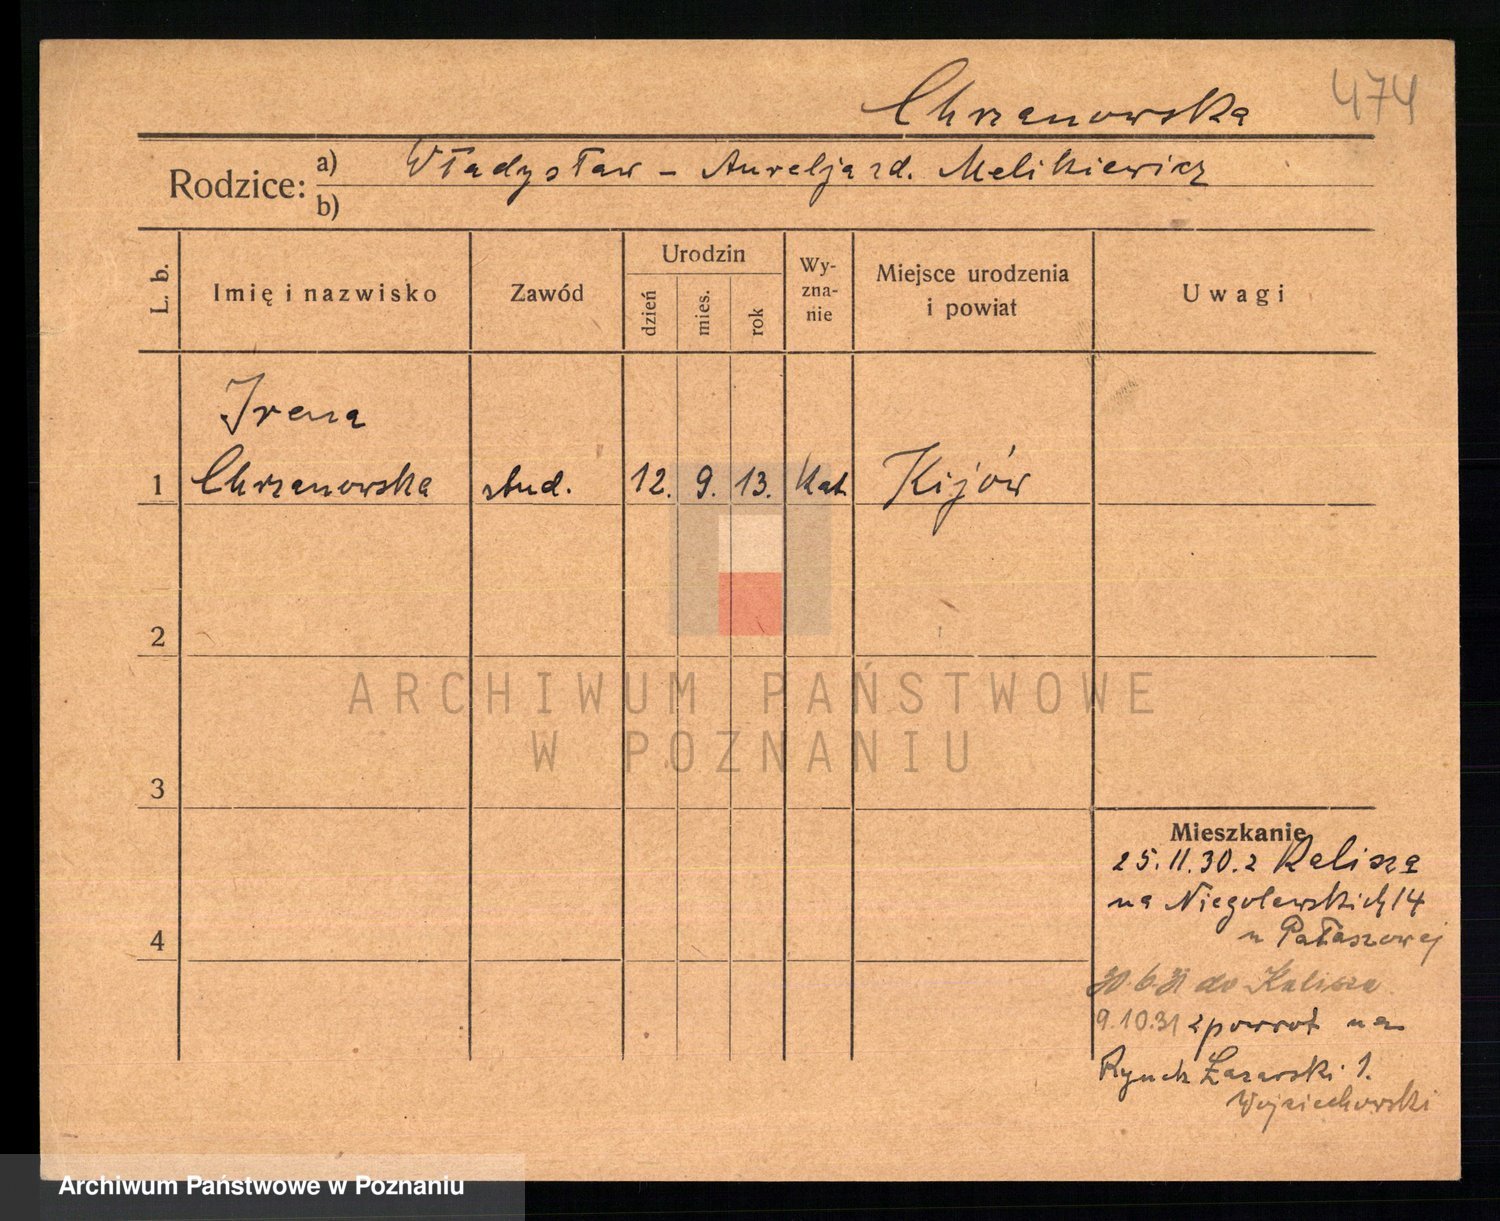 474
Chrzanowska
Rodzice: a) Władysław – Aurelja zd. Melikiewicz
b)
L. b.
Imię i nazwisko
Zawód
Urodzin
dzień
mies.
rok
Wy-
zna-
nie
Miejsce urodzenia
i powiat
Uwagi
Irena
1 Chrzanowska stud. 12. 9. 13. Kat Kijów
2
3
4
Mieszkanie
25.11.30. z Kalisza
na Niegolewskich 14
u Pałaszowej
30.6.31 do Kalisza
9.10.31 zpowrot na
Rynek Łazarski 1.
Wojciechowski
ARCHIWUM PAŃSTWOWE
W POZNANIU
Archiwum Państwowe w Poznaniu